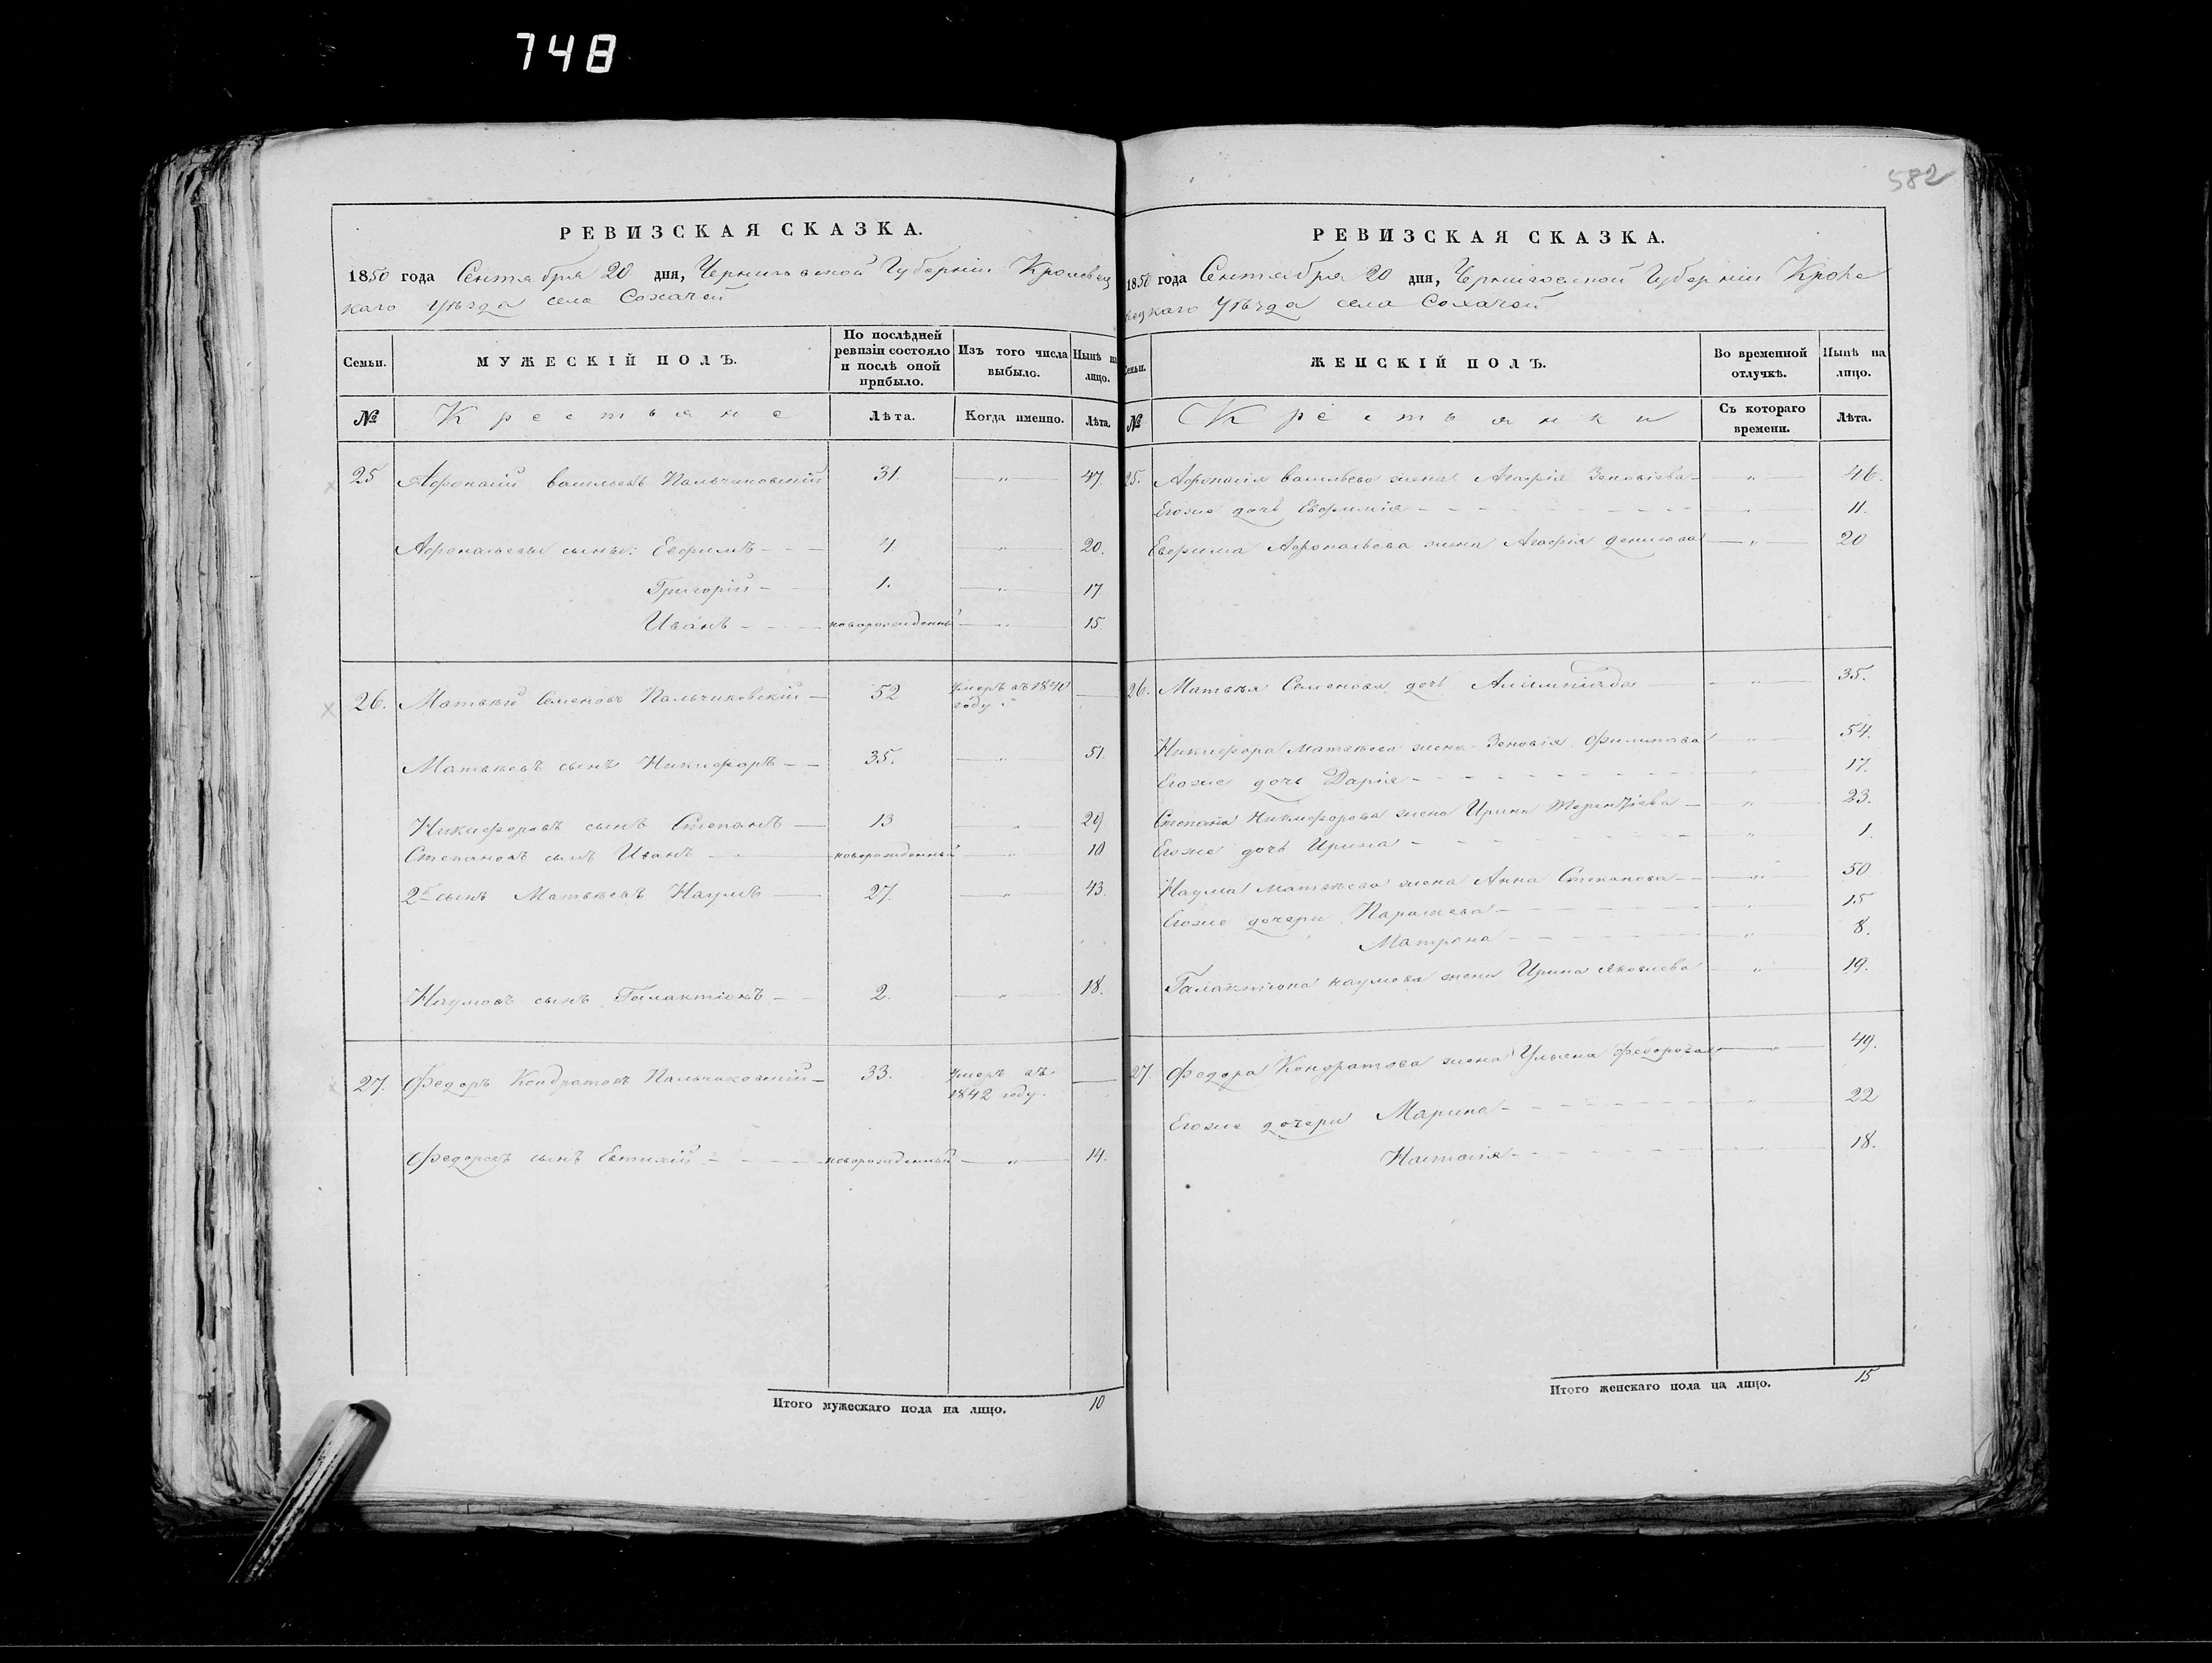 748
РЕВИЗСКАЯ СКАЗКА.
1850 года Сентября 20 дня, Черниговской Губерніи Кролевец
каго уѣзда села Сохачей
Семьи. МУЖЕСКІЙ ПОЛЪ. По послѣдней ревизіи состояло и послѣ оной прибыло. Изъ того числа выбыло. Нынѣ на лицо.
№ Крестьяне Лѣта. Когда именно. Лѣта.
25 Афонасій васильевъ Пальчиковскій 31. — „ — 47.
Афонасьевы сыны: Евфимъ 4 — „ — 20.
Григорій 1. — „ — 17
Иванъ новорожденный — „ — 15.
26. Матвѣй Семеновъ Пальчиковскій 52 умеръ въ 1840 году. —
Матвѣевъ сынъ Никифоръ 35. — „ — 51
Никифоровъ сынъ Степанъ 13 — „ — 29
Степановъ сынъ Иванъ новорожденный — „ — 10
2й сынъ Матвѣевъ Наумъ 27. — „ — 43.
Наумовъ сынъ Галактіонъ 2. — „ — 18.
27. Федоръ Кондратовъ Пальчиковскій 33. умеръ въ 1842 году. —
Федоровъ сынъ Евтихій новорожденный — „ — 14.
Итого мужескаго пола на лицо. 10
582
РЕВИЗСКАЯ СКАЗКА.
1850 года Сентября 20 дня, Черниговской Губерніи Кроле
вецкаго уѣзда села Сохачей
Семьи. ЖЕНСКІЙ ПОЛЪ. Во временной отлучкѣ. Нынѣ на лицо.
№ Крестьянки Съ котораго времени. Лѣта.
25. Афонасія васильева жена Агафія Зеновіева — „ — 46.
Егоже дочь Евфимія — „ — 11.
Евфима Афонасьева жена Агафія денисова — „ — 20
26. Матвѣя Семенова дочь Алимпіада — „ — 35.
Никифора Матвѣева жена Зеновія Филипова — „ — 54.
Егоже дочь Дарія — „ — 17.
Степана Никифорова жена Ирина Терентіева — „ — 23.
Егоже дочь Ирина — „ — 1.
Наума Матвѣева жена Анна Степанова — „ — 50
Егоже дочери Парасковia — „ — 15
Матрона — „ — 8.
Галактіона наумова жена Ирина Яковлева — „ — 19.
27. Федора Кондратова жена Ульяна Федорова — „ — 49.
Егоже дочери Марина — „ — 22
Наталія — „ — 18.
Итого женскаго пола на лицо. 15